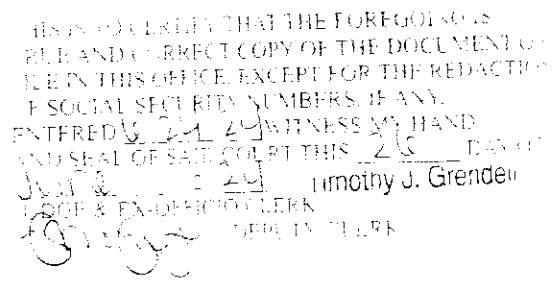 THIS IS TO CERTIFY THAT THE FOREGOING IS
TRUE AND CORRECT COPY OF THE DOCUMENT ON
FILE IN THIS OFFICE, EXCEPT FOR THE REDACTION
OF SOCIAL SECURITY NUMBERS, IF ANY.
ENTERED 6 24 24 WITNESS MY HAND
AND SEAL OF SAID COURT THIS 26 DAY OF
June 24 Timothy J. Grendell
JUDGE & EX-OFFICIO CLERK
DEPUTY CLERK